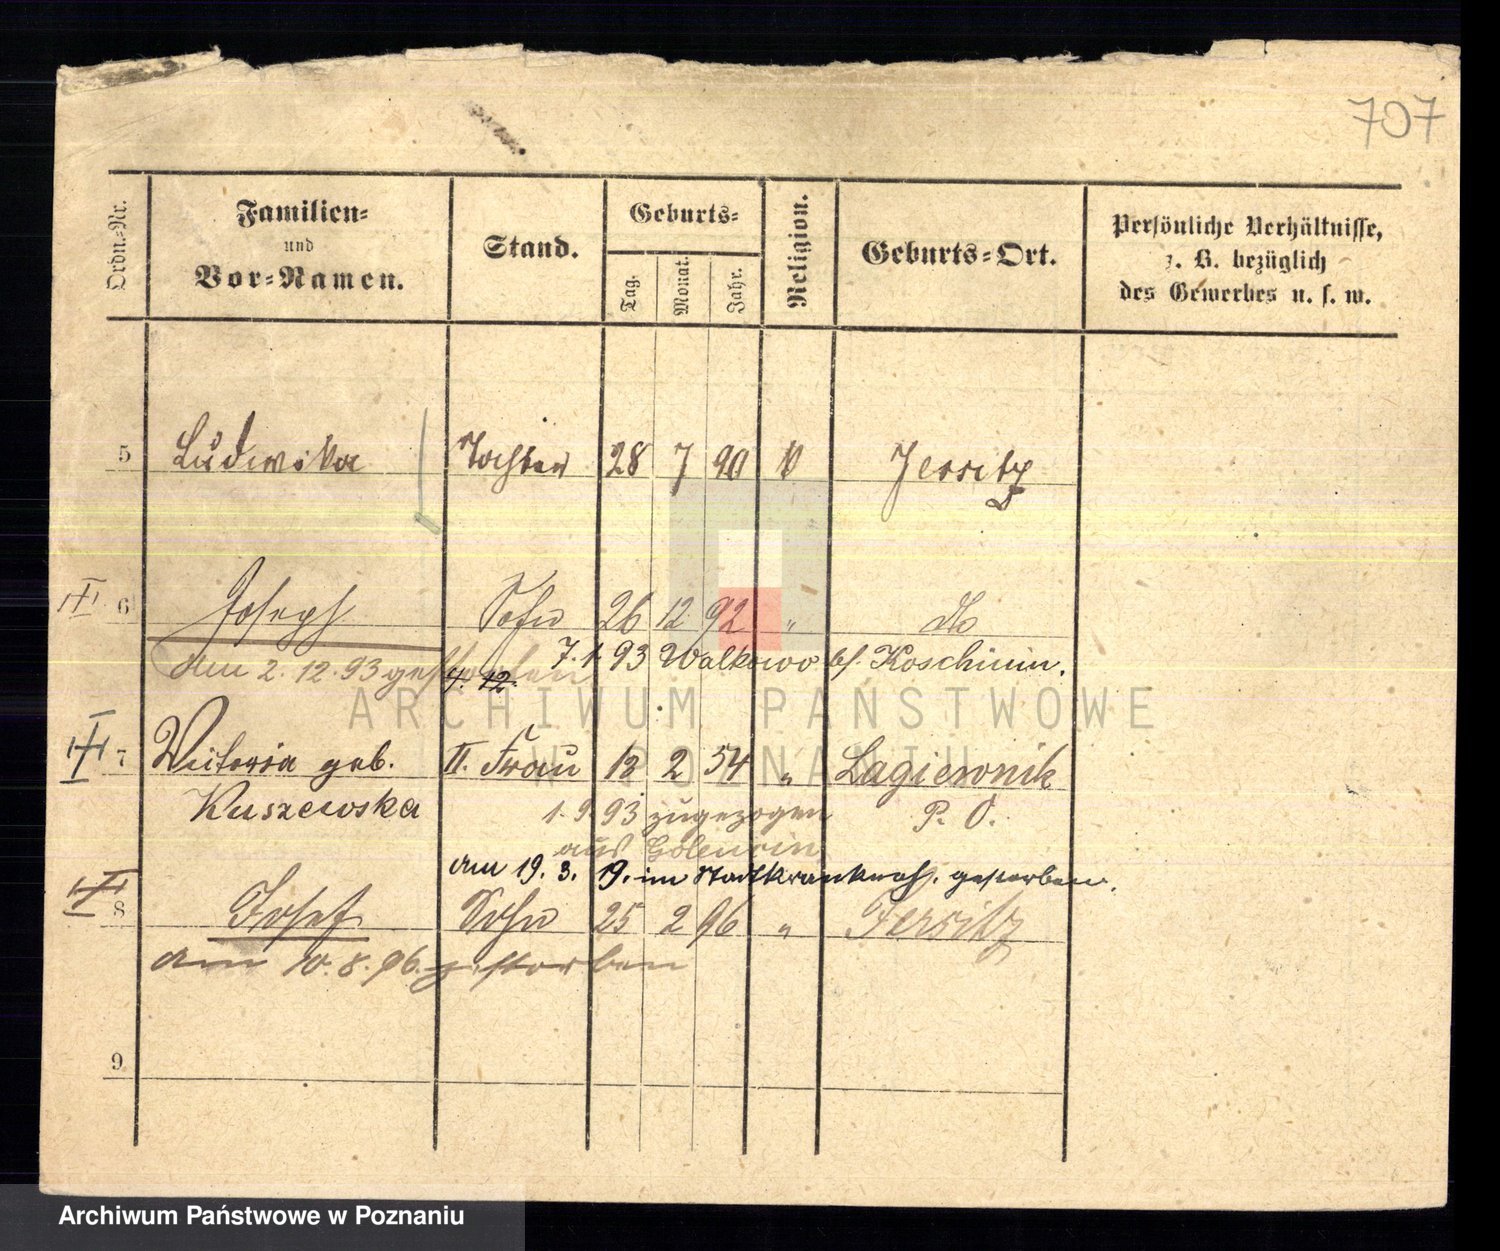 707
Ordn.-Nr.
Familien-
und
Vor-Namen.
Stand.
Geburts-
Tag.
Monat.
Jahr.
Religion.
Geburts-Ort.
Persönliche Verhältnisse,
z. B. bezüglich
des Gewerbes u. s. w.
5 Ludwika Tochter 28 7 90 Jersitz
6 Joseph Sohn 26 12 92 " do
am 2. 12. 93 gestorben 4. 12. 7. 1. 93 Walkowo bf. Koschmin.
7 Victoria geb. II. Frau 13 2 54 " Lagiewnik
Kuszewska 1. 9. 93 zugezogen P. O.
aus
am 19. 3. 19. im Stadtkrankenh. gestorben.
8 Josef Sohn 25 2 96 " Jersitz
am 10. 8. 96. gestorben
9
ARCHIWUM PAŃSTWOWE
W POZNANIU
Archiwum Państwowe w Poznaniu